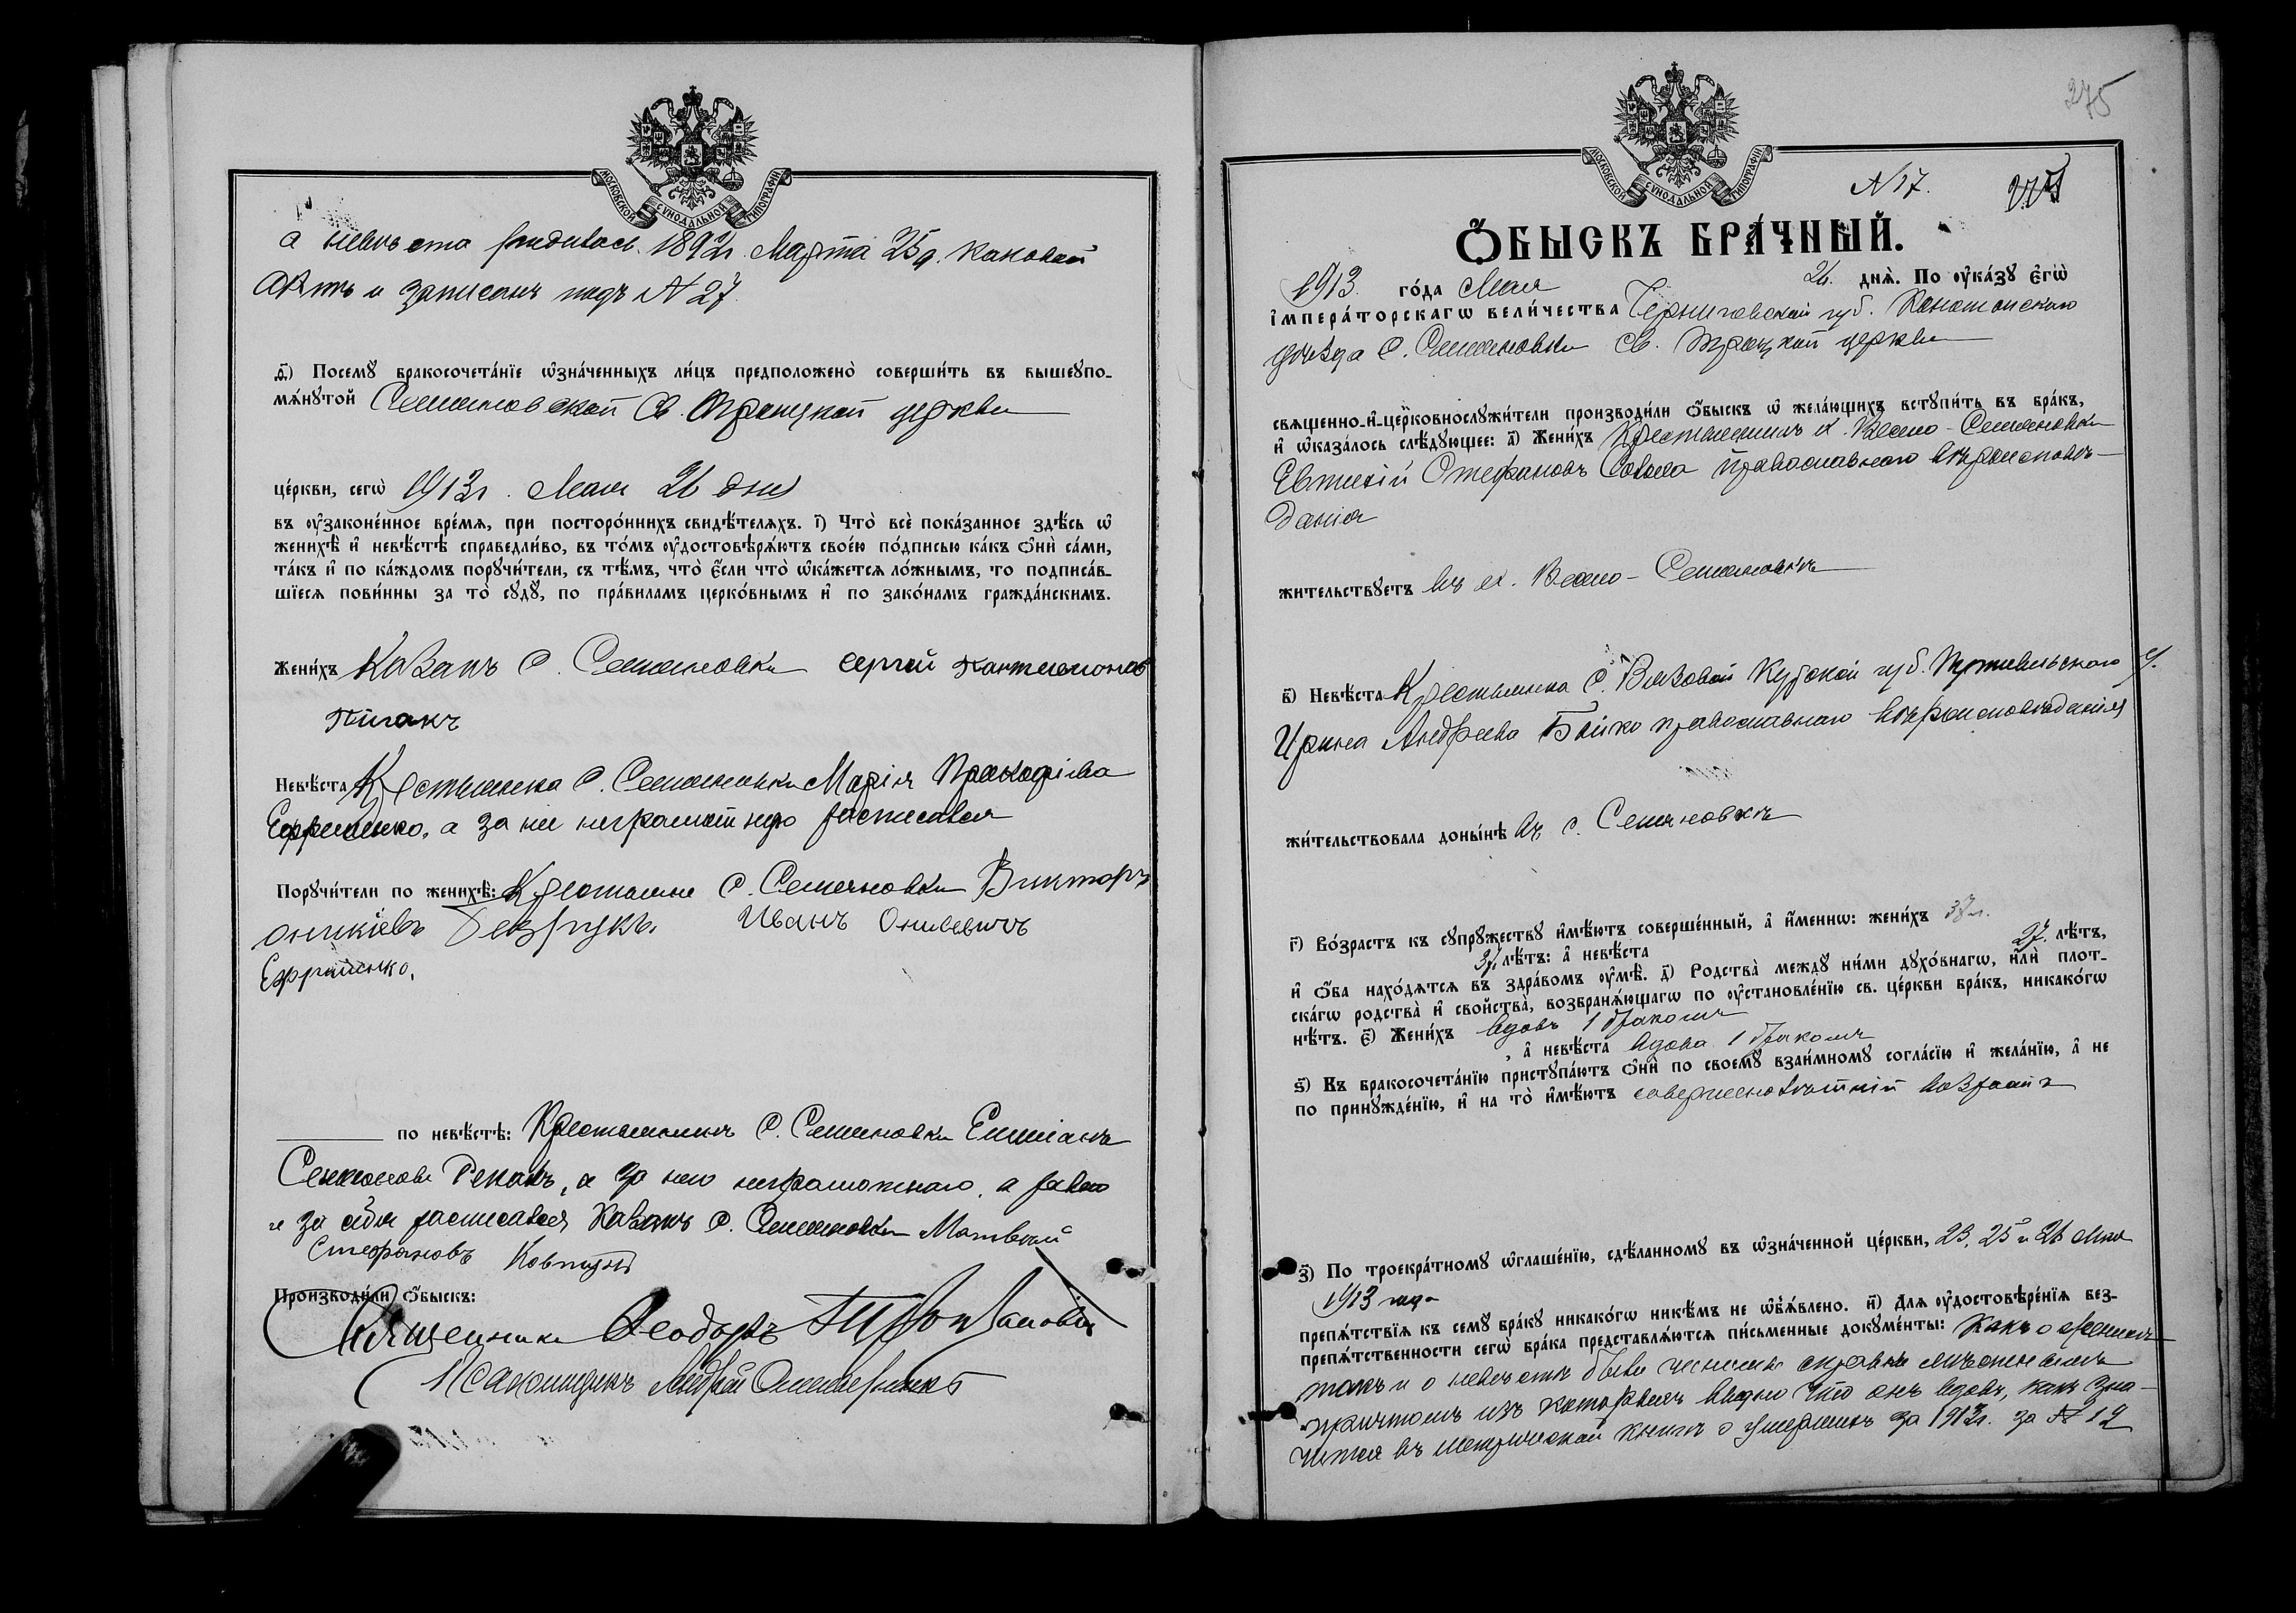 МОСКОВСКОЙ СУНОДАЛЬНОЙ ТИПОГРАФІИ
а невѣста родилась 1892 г. Марта 25 д. каковой
актъ и записанъ подъ № 27.
д҃і) Посемꙋ бракосочета́нїе ѡ҆зна́ченныхъ ли́цъ предположено̀ соверши́ть въ вышеꙋпо-
мѧ́нꙋтой Семяновской Св. Троицкой церкви
це́ркви, сегѡ̀ 1913 г. Мая 26 дня
въ ᲂу҆законе́нное вре́мѧ, при посторо́ннихъ свидѣ́телѧхъ. і҃) Что̀ всѐ пока́занное здѣ́сь ѡ҆
женихѣ̀ и҆ невѣ́стѣ справедли́во, въ то́мъ ᲂу҆достовѣрѧ́ютъ свое́ю по́дписью ка́къ ѻ҆нѝ са́ми,
та́къ и҆ по ка́ждомъ порꙋчи́тели, съ тѣ́мъ, что̀ є҆́сли что̀ ѡ҆ка́жетсѧ ло́жнымъ, то подписа́в-
шїесѧ пови́нны за то̀ сꙋдꙋ̀, по пра́виламъ церко́внымъ и҆ по зако́намъ гражда́нскимъ.
Жени́хъ Козакъ с. Семяновки Сергей Пантелеионовъ
Невѣ́ста Крестьянка с. Семяновки Марія Прокофіева
Ефременко, а за неё неграмотную расписался
Порꙋчи́тели по женихѣ̀: Крестьяне с. Семяновки Викторъ
Иванъ
Ефрѣменко.
по невѣ́стѣ: Крестьянинъ с. Семяновки Емиліанъ
а за него неграмотнаго, а равно
и за себя расписался Козакъ с. Семяновки Матвѣй
Стефановъ
Производи́ли ѻ҆́быскъ:
Священникъ Ѳеодоръ
Псаломщикъ Андрей
275
МОСКОВСКОЙ СУНОДАЛЬНОЙ ТИПОГРАФІИ
N 17. 275
Ѻ҆́БЫСКЪ БРА́ЧНЫЙ.
1913. го́да Мая 26. днѧ̀. По ᲂу҆ка́зꙋ є҆гѡ̀
і҆мпера́торскагѡ вели́чества Черниговской губ. Конотопскаго
уѣзда с. Семяновки Св. Троицкой церкви
свѧщенно-и҆-церковнослꙋжи́тели производи́ли ѻ҆́быскъ ѡ҆ жела́ющихъ встꙋпи́ть въ бра́къ,
и҆ ѡ҆каза́лось слѣ́дꙋющее: а҃) Жени́хъ Крестьянинъ х. Весело-Семяновки
Евтихій Стефановъ православнаго вѣроисповѣ-
данія
жи́тельствꙋетъ въ х. Весело-Семяновкѣ
в҃) Невѣ́ста Крестьянка с. Вязовой Курской губ. Путивльскаго у.
Ирина Андреева Бойко православнаго вѣроисповѣданія
жи́тельствовала доны́нѣ въ с. Семяновкѣ
г҃) Во́зрастъ къ сꙋпрꙋ́жествꙋ и҆мѣ́ютъ соверше́нный, а҆ и҆́меннѡ: жени́хъ
37 лѣ́тъ: а҆ невѣ́ста 27. лѣ́тъ,
и҆ ѻ҆́ба нахо́дѧтсѧ въ здра́вомъ ᲂу҆мѣ̀. д҃) Родства̀ междꙋ ни́ми дꙋхо́внагѡ, и҆лѝ плот-
ска́гѡ родства̀ и҆ сво́йства̀, возбранѧ́ющагѡ по ᲂу҆становле́нїю св. це́ркви бра́къ, никако́гѡ
нѣ́тъ. є҃) Жени́хъ вдовъ 1 бракомъ
, а҆ невѣ́ста вдова 1 бракомъ
ѕ҃) Въ бракосочета́нїю пристꙋпа́ютъ ѻ҆нѝ по своемꙋ̀ взаи́мномꙋ согла́сїю и҆ жела́нїю, а҆ не
по принꙋжде́нїю, и҆ на то̀ и҆мѣ́ютъ совершеннолѣтній возрастъ
з҃) По троекра́тномꙋ ѡ҆глаше́нїю, сдѣ́ланномꙋ въ ѡ҆зна́ченной це́ркви, 23, 25 и 26 Мая
1913 года
препѧ́тствїѧ къ семꙋ̀ бра́кꙋ никако́гѡ никѣ́мъ не ѡ҆б̾ѧ́влено. и҃) Длѧ ᲂу҆достовѣре́нїѧ без-
препѧ́тственности сегѡ̀ бра́ка представлѧ́ютсѧ пи́сьменные докꙋме́нты: Какъ о женихѣ
такъ и о невѣстѣ были справки мѣстнымъ
причтомъ изъ которыхъ видно что онъ вдовъ, какъ зна-
чится въ метрической книгѣ о умершихъ за 1912 г. за № 19